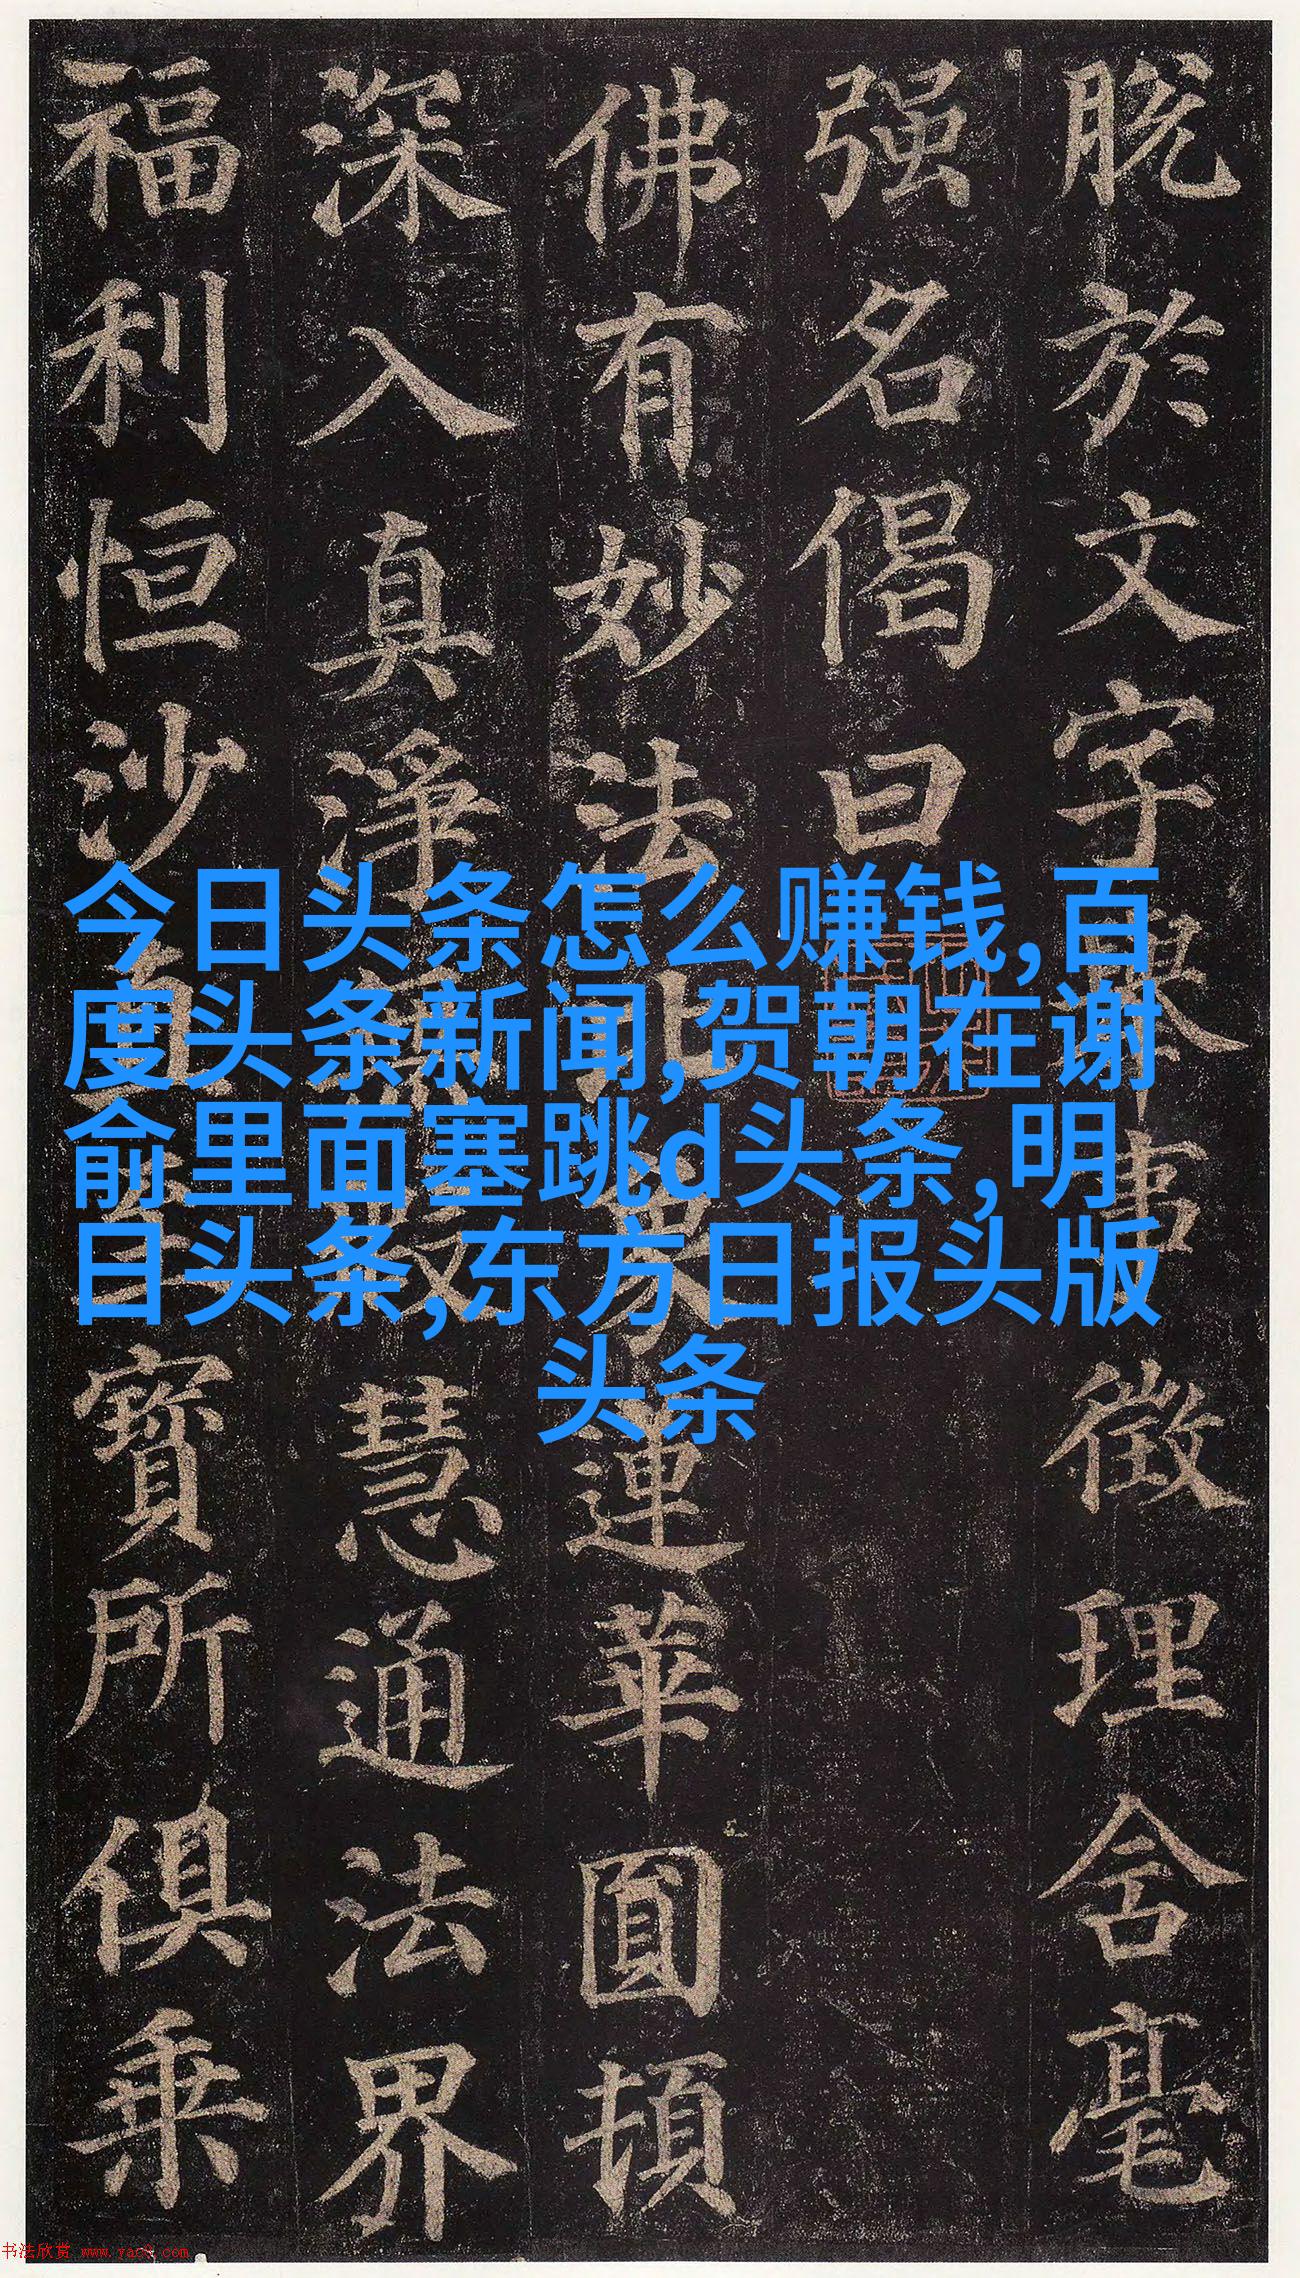 脱於文字舉事徵理含毫
强名偈曰
佛有妙法比象蓮華圓頓
深入真淨無瑕慧通法界
福利恒沙直至寶所俱乘
今日头条怎么赚钱,百
度头条新闻,贺朝在谢
俞里面塞跳d头条,明
日头条,东方日报头版
头条
书法欣赏 www.yac8.com